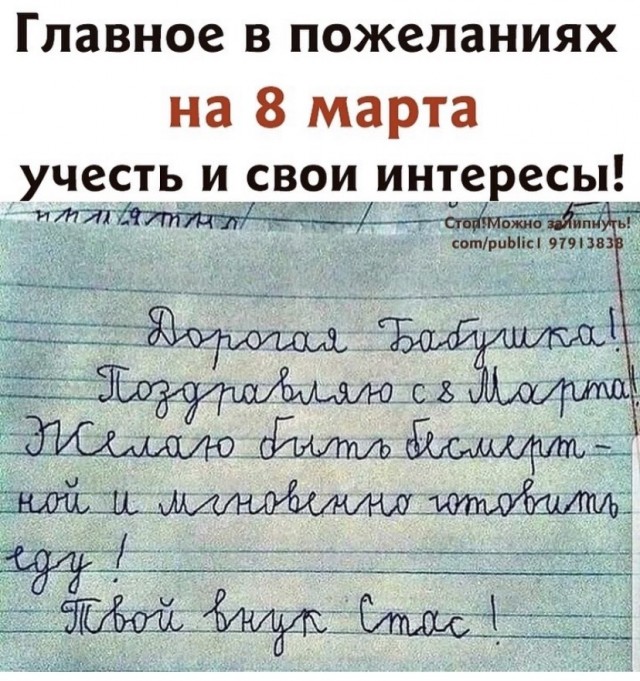 Главное в пожеланиях
на 8 марта
учесть и свои интересы!
Стоп!Можно залипнуть!
com/public1 97913838
Дорогая Бабушка!
Поздравляю с 8 Марта!
Желаю быть бесмерт-
ной и мгновенно готовить
еду!
Твой внук Стас!